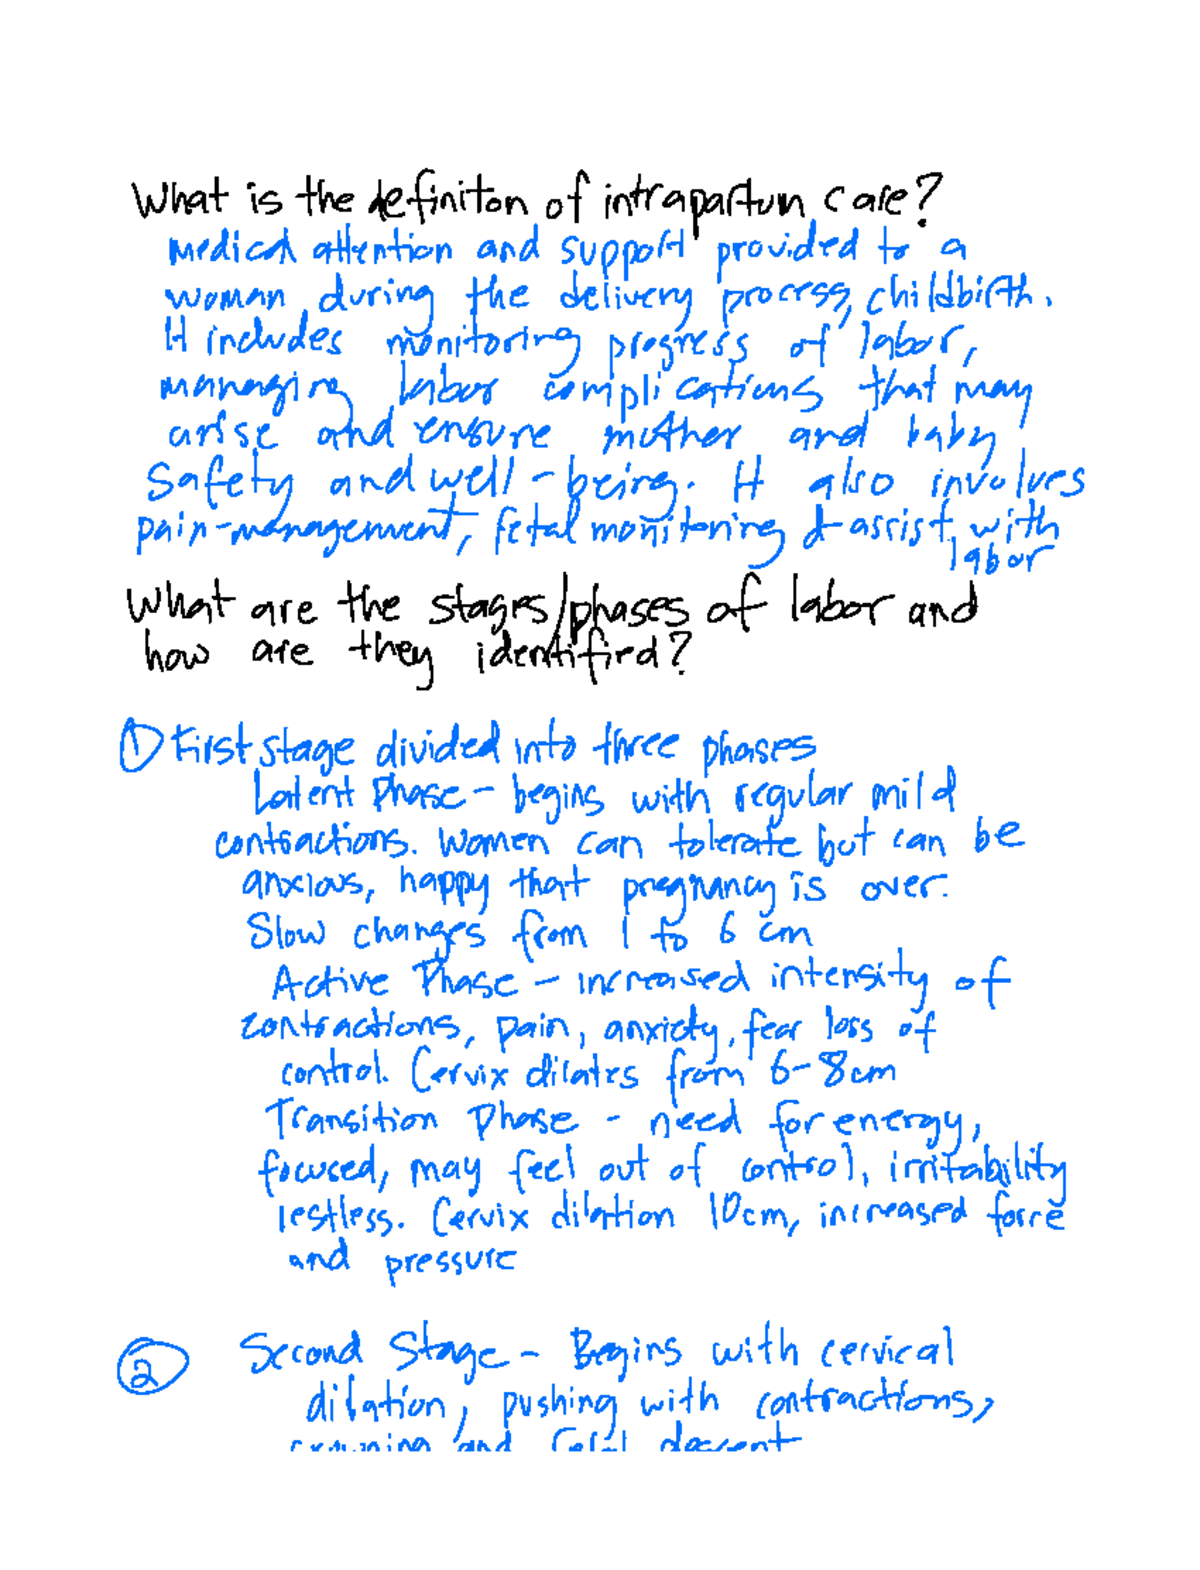 What is the definiton of intrapartum care?
Medical attention and support provided to a
woman during the delivery process, childbirth.
It includes monitoring progress of labor,
managing labor complications that may
arise and ensure mother and baby
Safety and well-being. It also involves
pain-management, fetal monitoring & assist with
labor
What are the stages/phases of labor and
how are they identified?
① First stage divided into three phases
Latent Phase - begins with regular mild
contractions. Women can tolerate but can be
anxious, happy that pregnancy is over.
Slow changes from 1 to 6 cm
Active Phase - increased intensity of
contractions, pain, anxiety, fear loss of
control. Cervix dilates from 6-8cm
Transition Phase - need for energy,
focused, may feel out of control, irritability
restless. Cervix dilation 10cm, increased force
and pressure
② Second Stage - Begins with cervical
dilation, pushing with contractions,
crowning and fetal descent